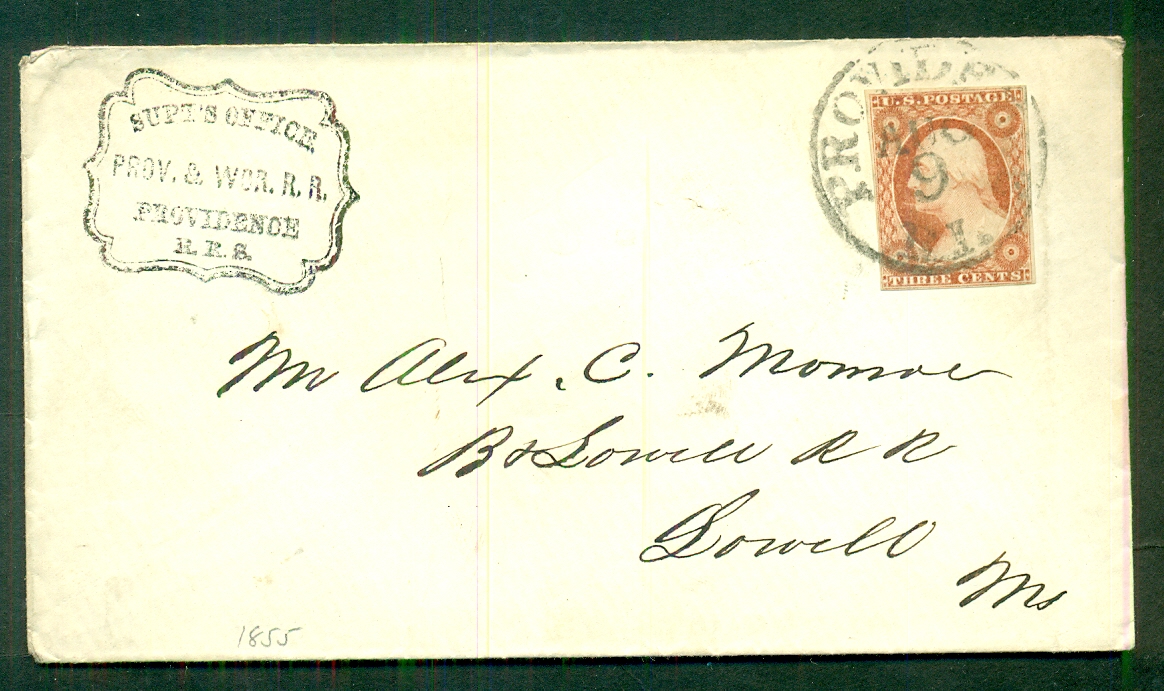 SUPT'S OFFICE
PROV. & WOR. R. R.
PROVIDENCE
R. R. S.
PROVIDE
AUG
9
R.I.
U.S. POSTAGE
THREE CENTS
Mr Alex. C. Monroe
B & Lowell R R
Lowell
Ms
1855